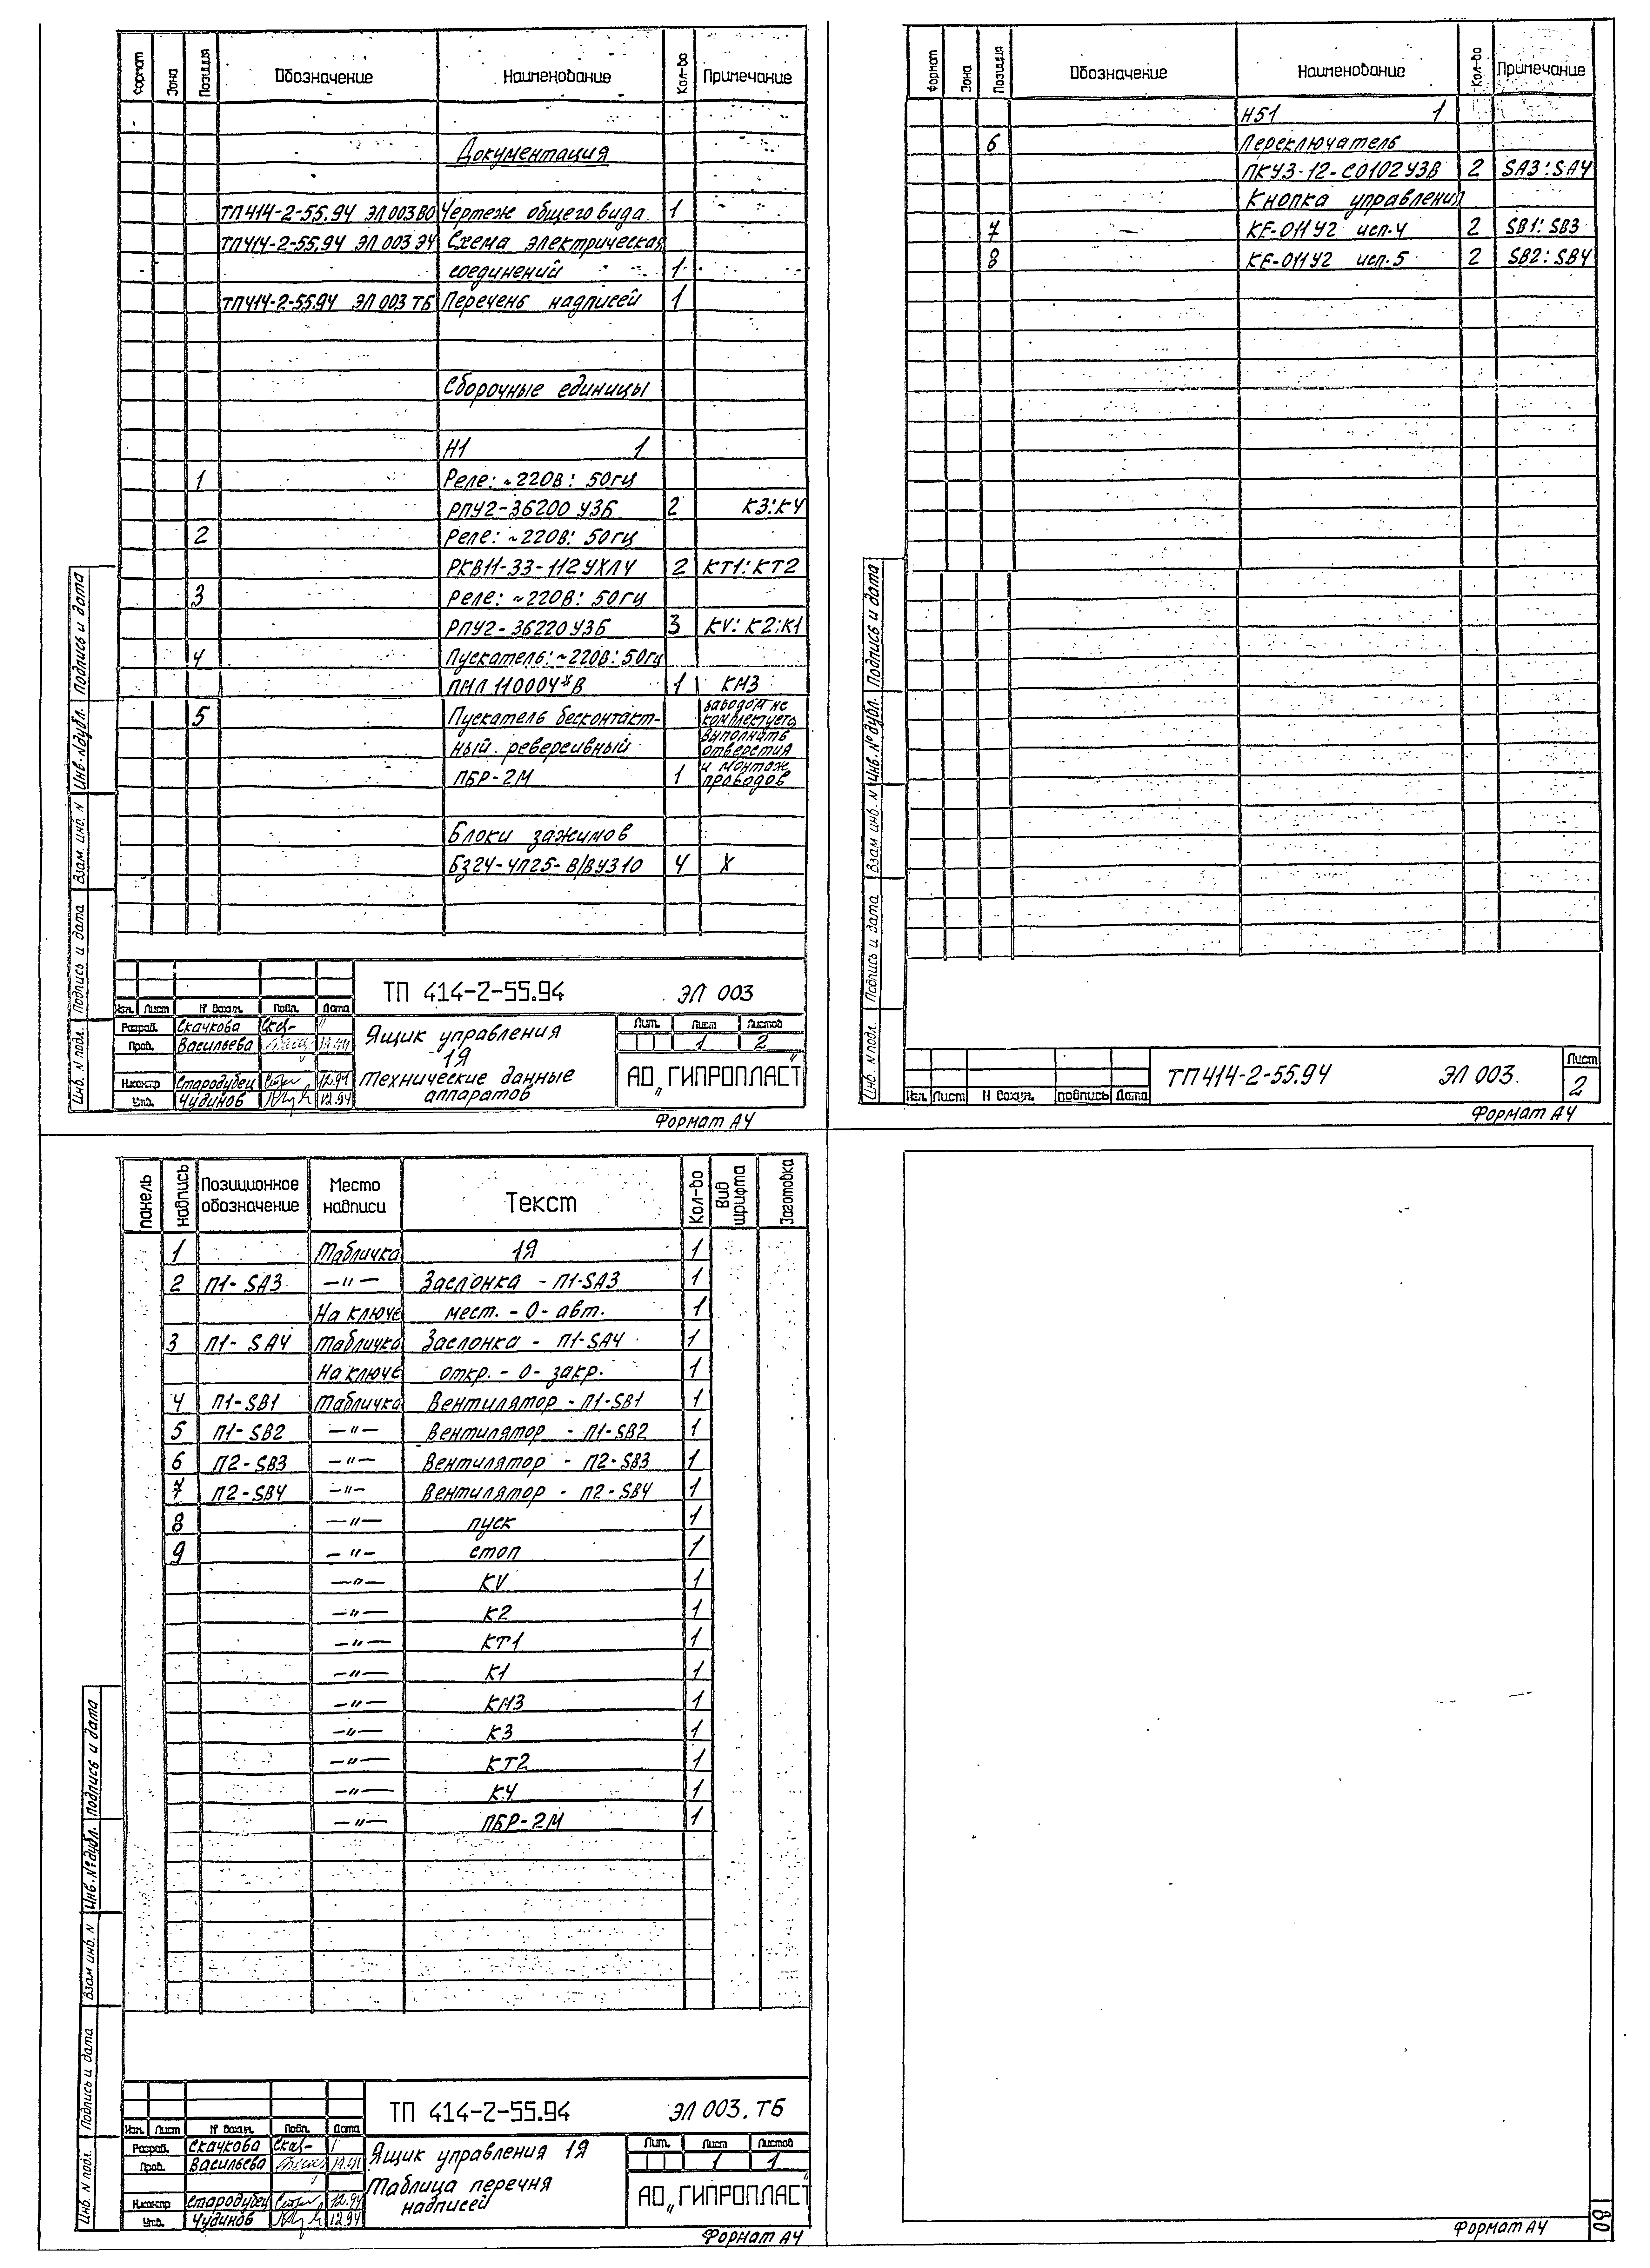 Формат Зона Позиция Обозначение Наименование Кол-во Примечание
Документация
ТП414-2-55.94 ЭЛ003ВО Чертеж общего вида 1
ТП414-2-55.94 ЭЛ 003 Э4 Схема электрическая
соединений 1
ТП414-2-55.94 ЭЛ 003 ТБ Перечень надписей 1
Сборочные единицы
Н1 1
1 Реле: ~220В: 50гц
РПУ2-36200 У3Б 2 К3:К4
2 Реле: ~220В: 50гц
РКВ11-33-112УХЛ4 2 КТ1:КТ2
3 Реле: ~220В: 50гц
РПУ2-36220У3Б 3 KV: К2:К1
4 Пускатель: ~220В: 50гц
ПМЛ 110004*В 1 КМ3
5 Пускатель бесконтакт-
ный реверсивный
ПБР-2М 1
заводом не
комплектуется
выполнить
отверстия
и монтаж
проводов
Блоки зажимов
Б324-4П25-В/ВУ310 4 Х
Инв. N подл. Подпись и дата Взам. инв. N Инв. N дубл. Подпись и дата
ТП 414-2-55.94 ЭЛ 003
Изм. Лист N докум. Подп. Дата
Разраб. Скачкова
Пров. Васильева
Н.контр Стародубец 12.94
Утв. Чудинов 12.94
Ящик управления
1Я
Технические данные
аппаратов
Лит. Лист Листов
1 2
АО „ГИПРОПЛАСТ"
Формат А4
Формат Зона Позиция Обозначение Наименование Кол-во Примечание
Н51 1
6 Переключатель
ПКУ3-12-С0102У3В 2 SA3:SA4
Кнопка управления
7 КЕ-011У2 исп.4 2 SB1:SB3
8 КЕ-011У2 исп.5 2 SB2:SB4
Инв. N подл. Подпись и дата Взам инв. N Инв. № дубл. Подпись и дата
Изм. Лист N докум. подпись Дата
ТП414-2-55.94 ЭЛ 003.
Лист
2
Формат А4
панель надпись Позиционное обозначение Место надписи Текст Кол-во Вид шрифта Заготовка
1 Табличка 1Я 1
2 П1-SA3 —"— Заслонка - П1-SA3 1
На ключе мест. - 0 - авт. 1
3 П1-SA4 Табличка Заслонка - П1-SA4 1
На ключе откр. - 0 - закр. 1
4 П1-SB1 Табличка Вентилятор - П1-SB1 1
5 П1-SB2 —"— Вентилятор - П1-SB2 1
6 П2-SB3 —"— Вентилятор - П2-SB3 1
7 П2-SB4 —"— Вентилятор - П2-SB4 1
8 —"— пуск 1
9 —"— стоп 1
—"— KV 1
—"— К2 1
—"— КТ1 1
—"— К1 1
—"— КМ3 1
—"— К3 1
—"— КТ2 1
—"— К4 1
—"— ПБР-2М 1
Инв. N подл. Подпись и дата Взам инв. N Инв. № дубл. Подпись и дата
ТП 414-2-55.94 ЭЛ 003. ТБ
Изм. Лист № докум. Подп. Дата
Разраб. Скачкова
Пров. Васильева
Н.контр Стародубец 12.94
Утв. Чудинов 12.94
Ящик управления 1Я
Таблица перечня
надписей
Лит. Лист Листов
1 1
АО „ГИПРОПЛАСТ"
Формат А4
Формат А4
80